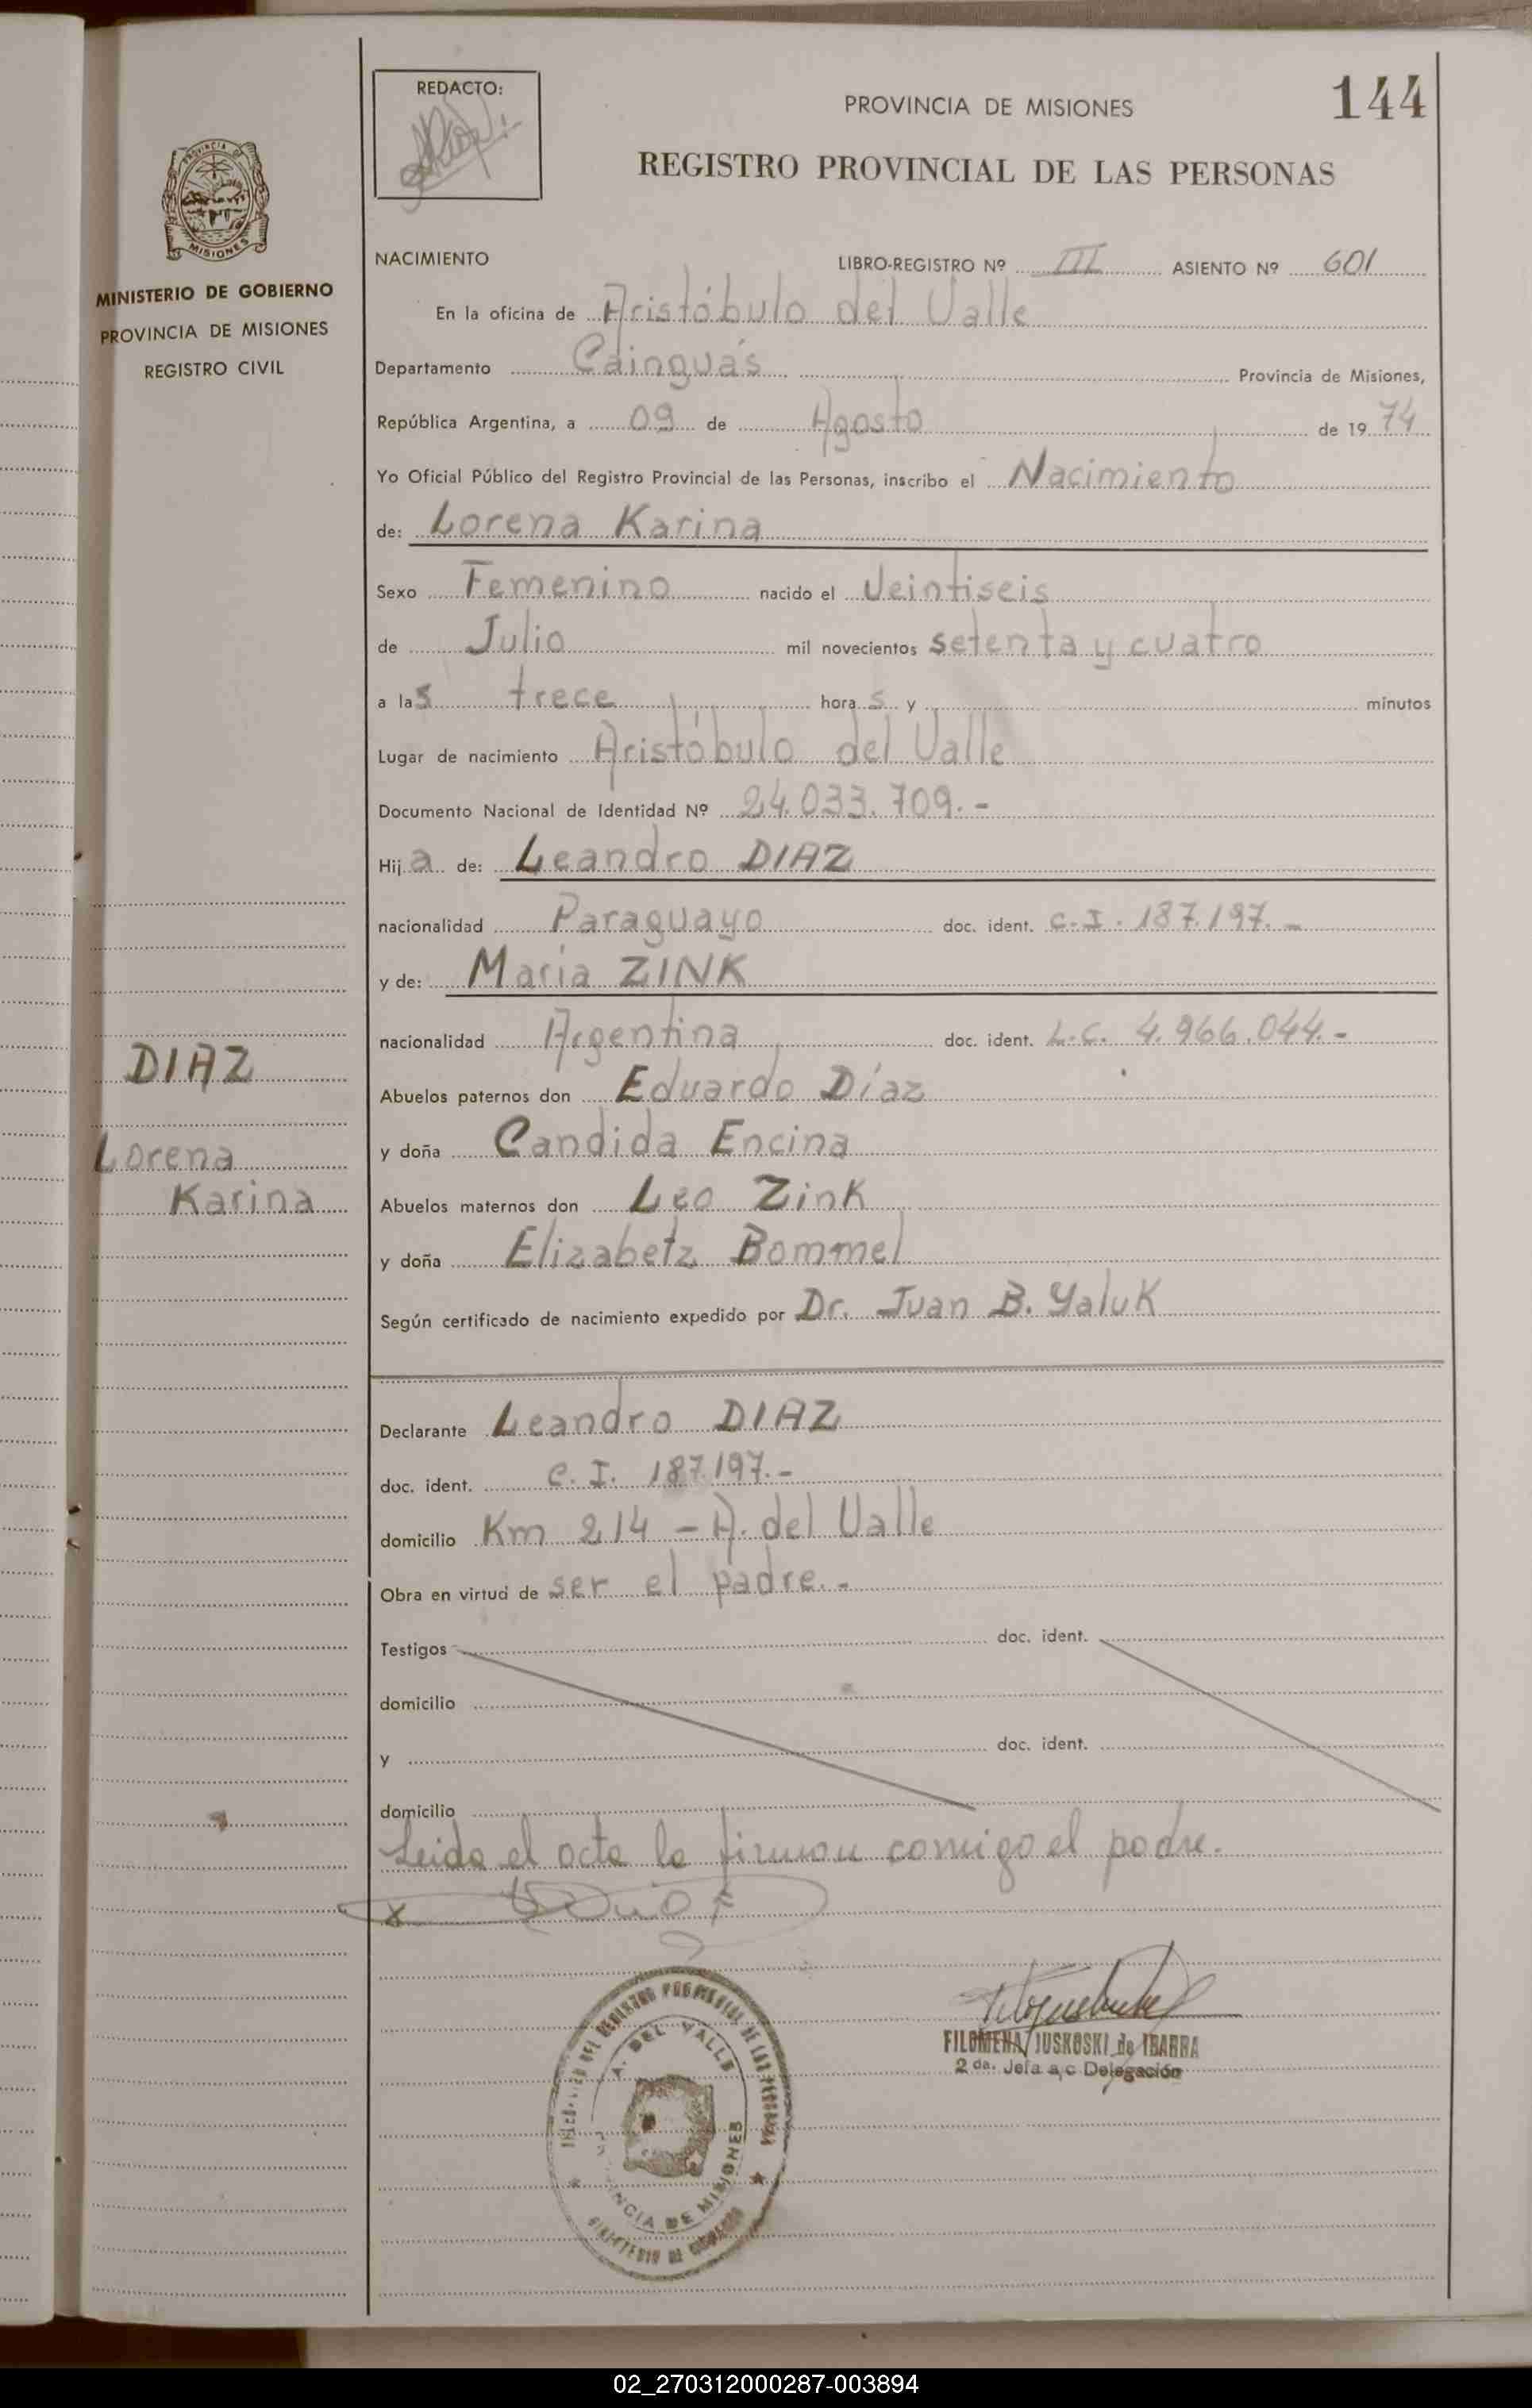 REDACTO:
PROVINCIA DE MISIONES
144
REGISTRO PROVINCIAL DE LAS PERSONAS
PROVINCIA DE
MISIONES
MINISTERIO DE GOBIERNO
PROVINCIA DE MISIONES
REGISTRO CIVIL
NACIMIENTO LIBRO-REGISTRO Nº III ASIENTO Nº 601
En la oficina de Aristóbulo del Valle
Departamento Cainguás Provincia de Misiones,
República Argentina, a 09 de Agosto de 19 74
Yo Oficial Público del Registro Provincial de las Personas, inscribo el Nacimiento
de: Lorena Karina
Sexo Femenino nacido el Veintiseis
de Julio mil novecientos setenta y cuatro
a las trece horas y minutos
Lugar de nacimiento Aristóbulo del Valle
Documento Nacional de Identidad Nº 24.033.709.-
Hija de: Leandro DIAZ
nacionalidad Paraguayo doc. ident. C.I. 187.197.-
y de: Maria ZINK
nacionalidad Argentina doc. ident. L.C. 4.966.044.-
Abuelos paternos don Eduardo Díaz
y doña Candida Encina
Abuelos maternos don Leo Zink
y doña Elizabetz Bommel
Según certificado de nacimiento expedido por Dr. Juan B. Yaluk
DIAZ
Lorena
Karina
Declarante Leandro DIAZ
doc. ident. C.I. 187.197.-
domicilio Km 214 - A. del Valle
Obra en virtud de ser el padre.-
Testigos doc. ident.
domicilio
y doc. ident.
domicilio
Leida el acta la firman comigo el padre.
x
FILOMENA JUSKOSKI de IBARRA
2 da. Jefa a/c Delegación
DEL REGISTRO PROVINCIAL DE LAS PERSONAS
A. DEL VALLE
PROVINCIA DE MISIONES
MINISTERIO DE GOBIERNO
02_270312000287-003894